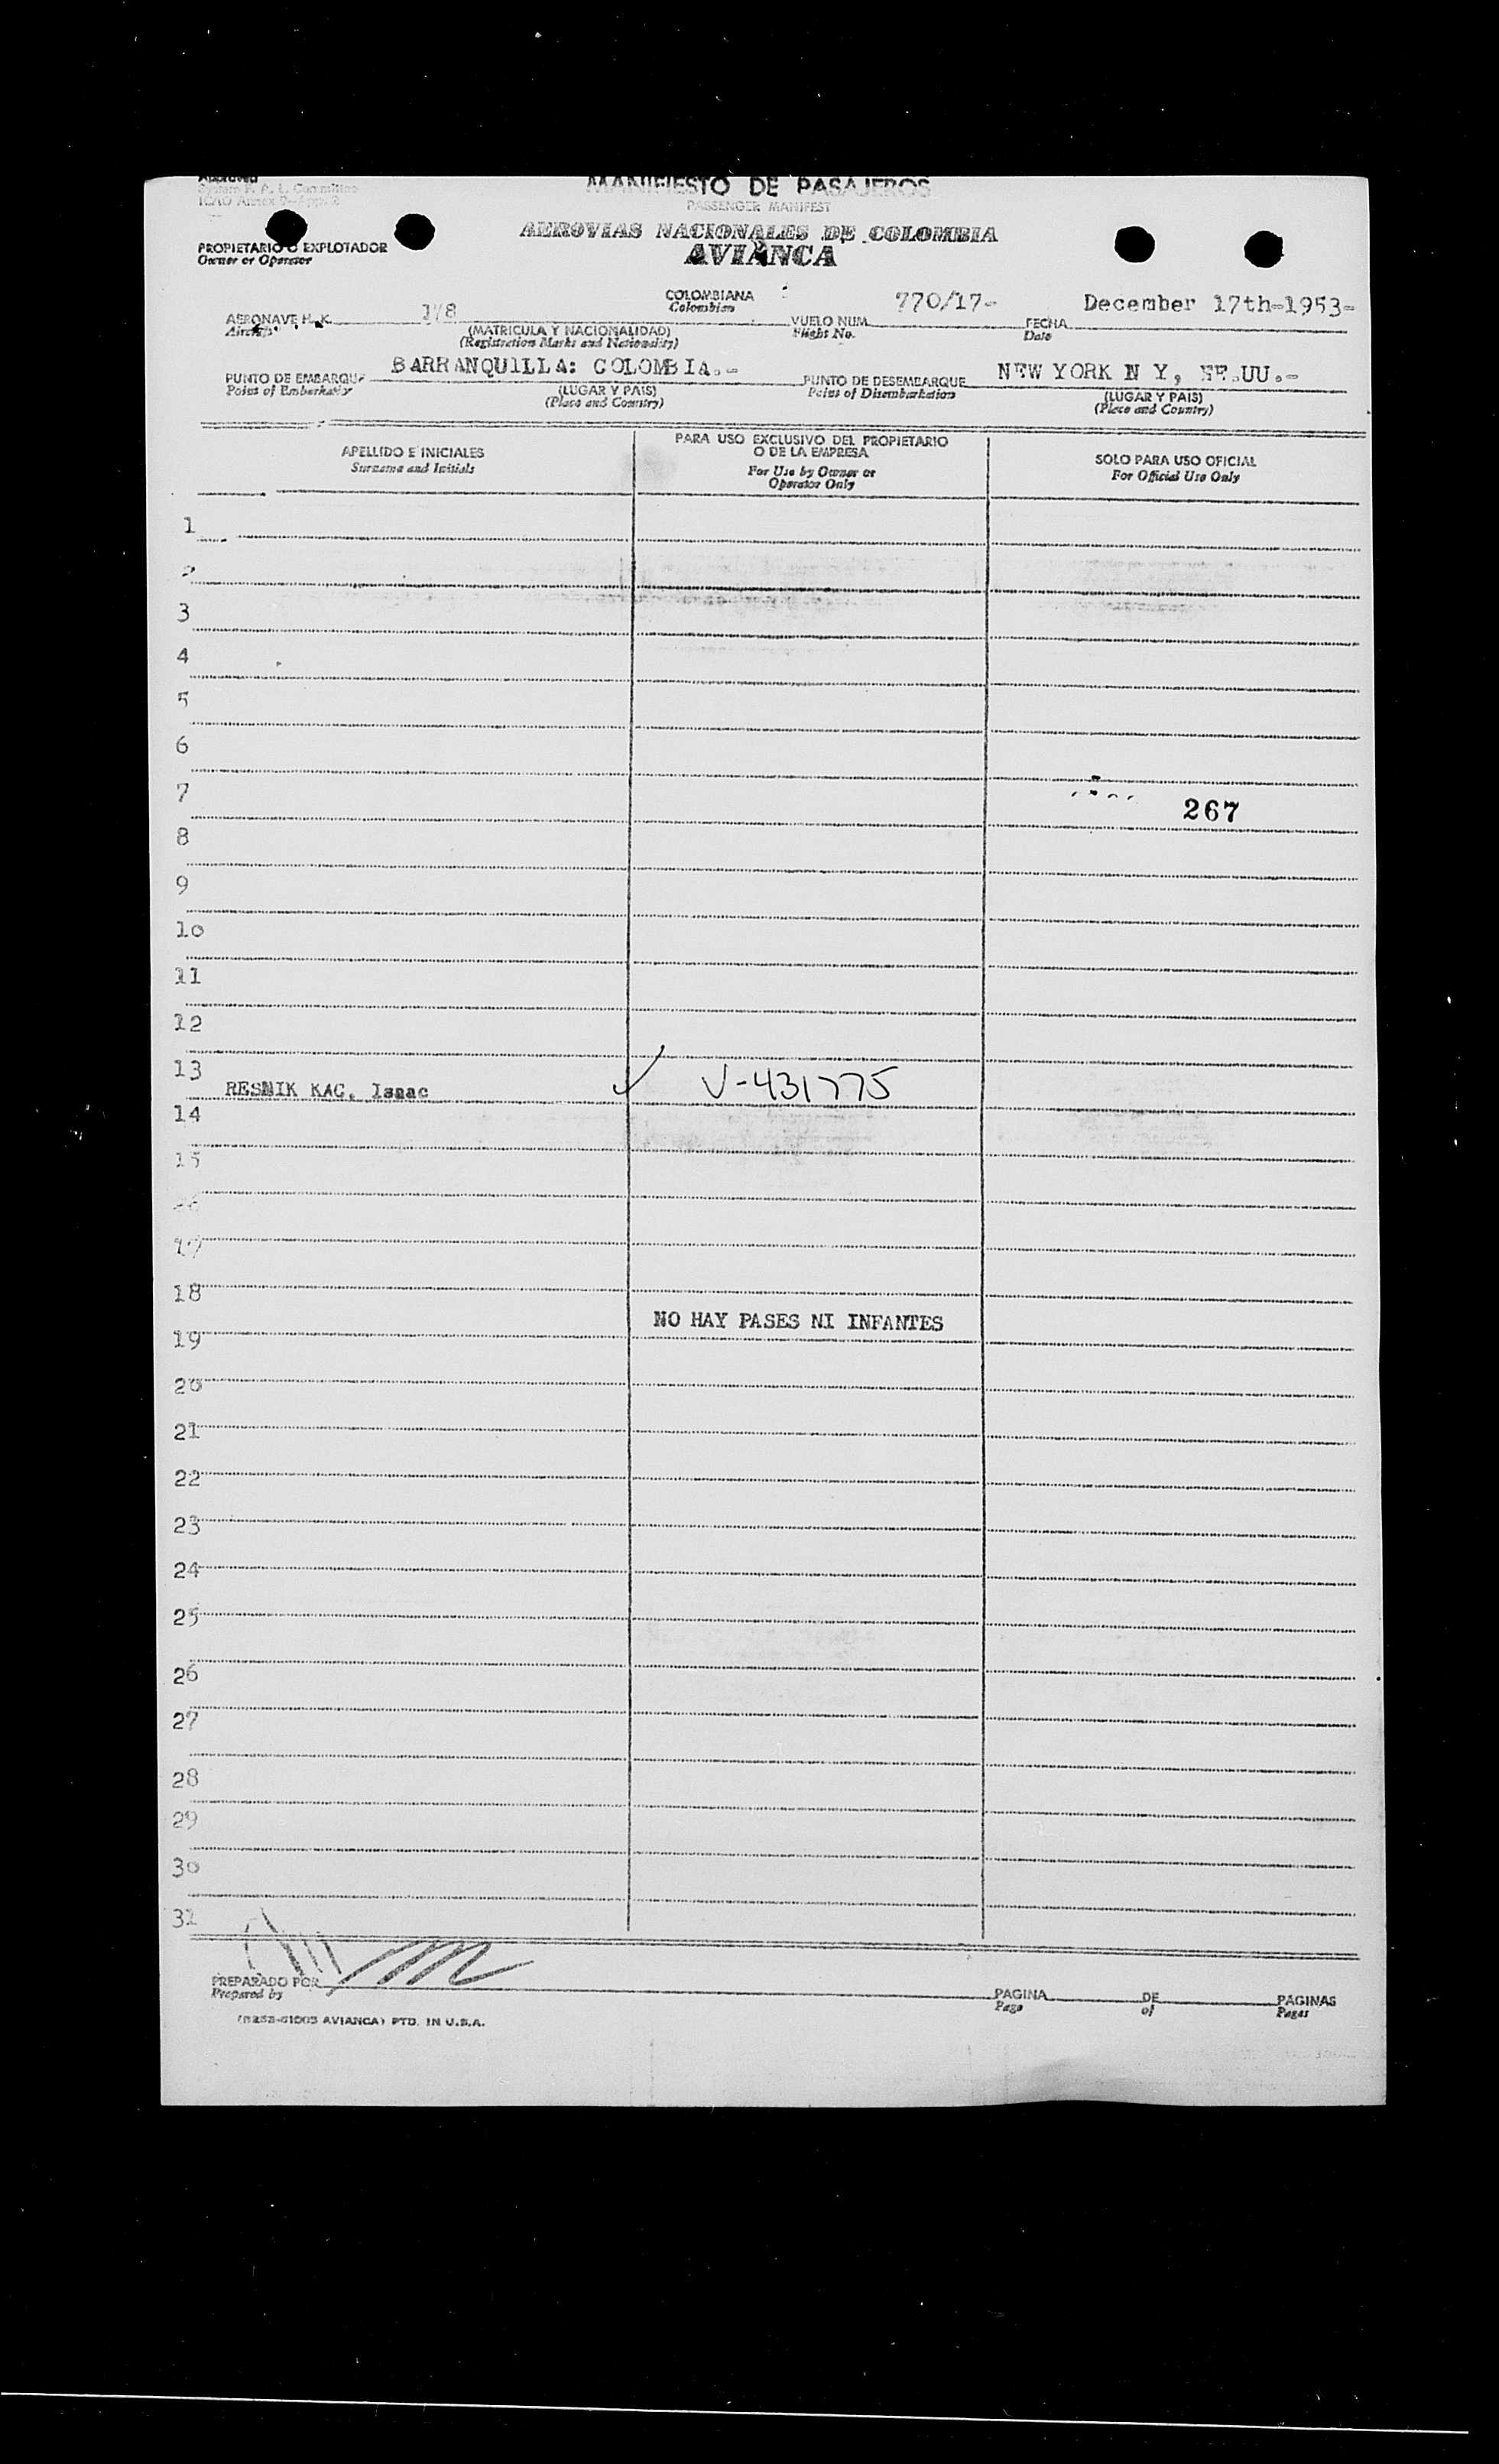 Approved
System F. A. L. Committee
ICAO Annex 9-App. 2
MANIFIESTO DE PASAJEROS
PASSENGER MANIFEST
AEROVIAS NACIONALES DE COLOMBIA
AVIANCA
PROPIETARIO O EXPLOTADOR
Owner or Operator
COLOMBIANA
Colombian
AERONAVE H. K.
Aircraft
(MATRICULA Y NACIONALIDAD)
(Registration Marks and Nationality)
VUELO NUM. 770/17-
Flight No.
FECHA December 17th-1953-
Date
PUNTO DE EMBARQUE BARRANQUILLA: COLOMBIA.-
Point of Embarkation
(LUGAR Y PAIS)
(Place and Country)
PUNTO DE DESEMBARQUE NEW YORK N Y, EE.UU.-
Point of Disembarkation
(LUGAR Y PAIS)
(Place and Country)
APELLIDO E INICIALES
Surname and Initials
PARA USO EXCLUSIVO DEL PROPIETARIO
O DE LA EMPRESA
For Use by Owner or
Operator Only
SOLO PARA USO OFICIAL
For Official Use Only
1
2
3
4
5
6
7
267
8
9
10
11
12
13
RESNIK KAC, Isaac ✓ V-431775
14
15
16
17
18
NO HAY PASES NI INFANTES
19
20
21
22
23
24
25
26
27
28
29
30
31
PREPARADO POR
Prepared by
PAGINA DE PAGINAS
Page of Pages
AVIANCA) PTD. IN U.S.A.